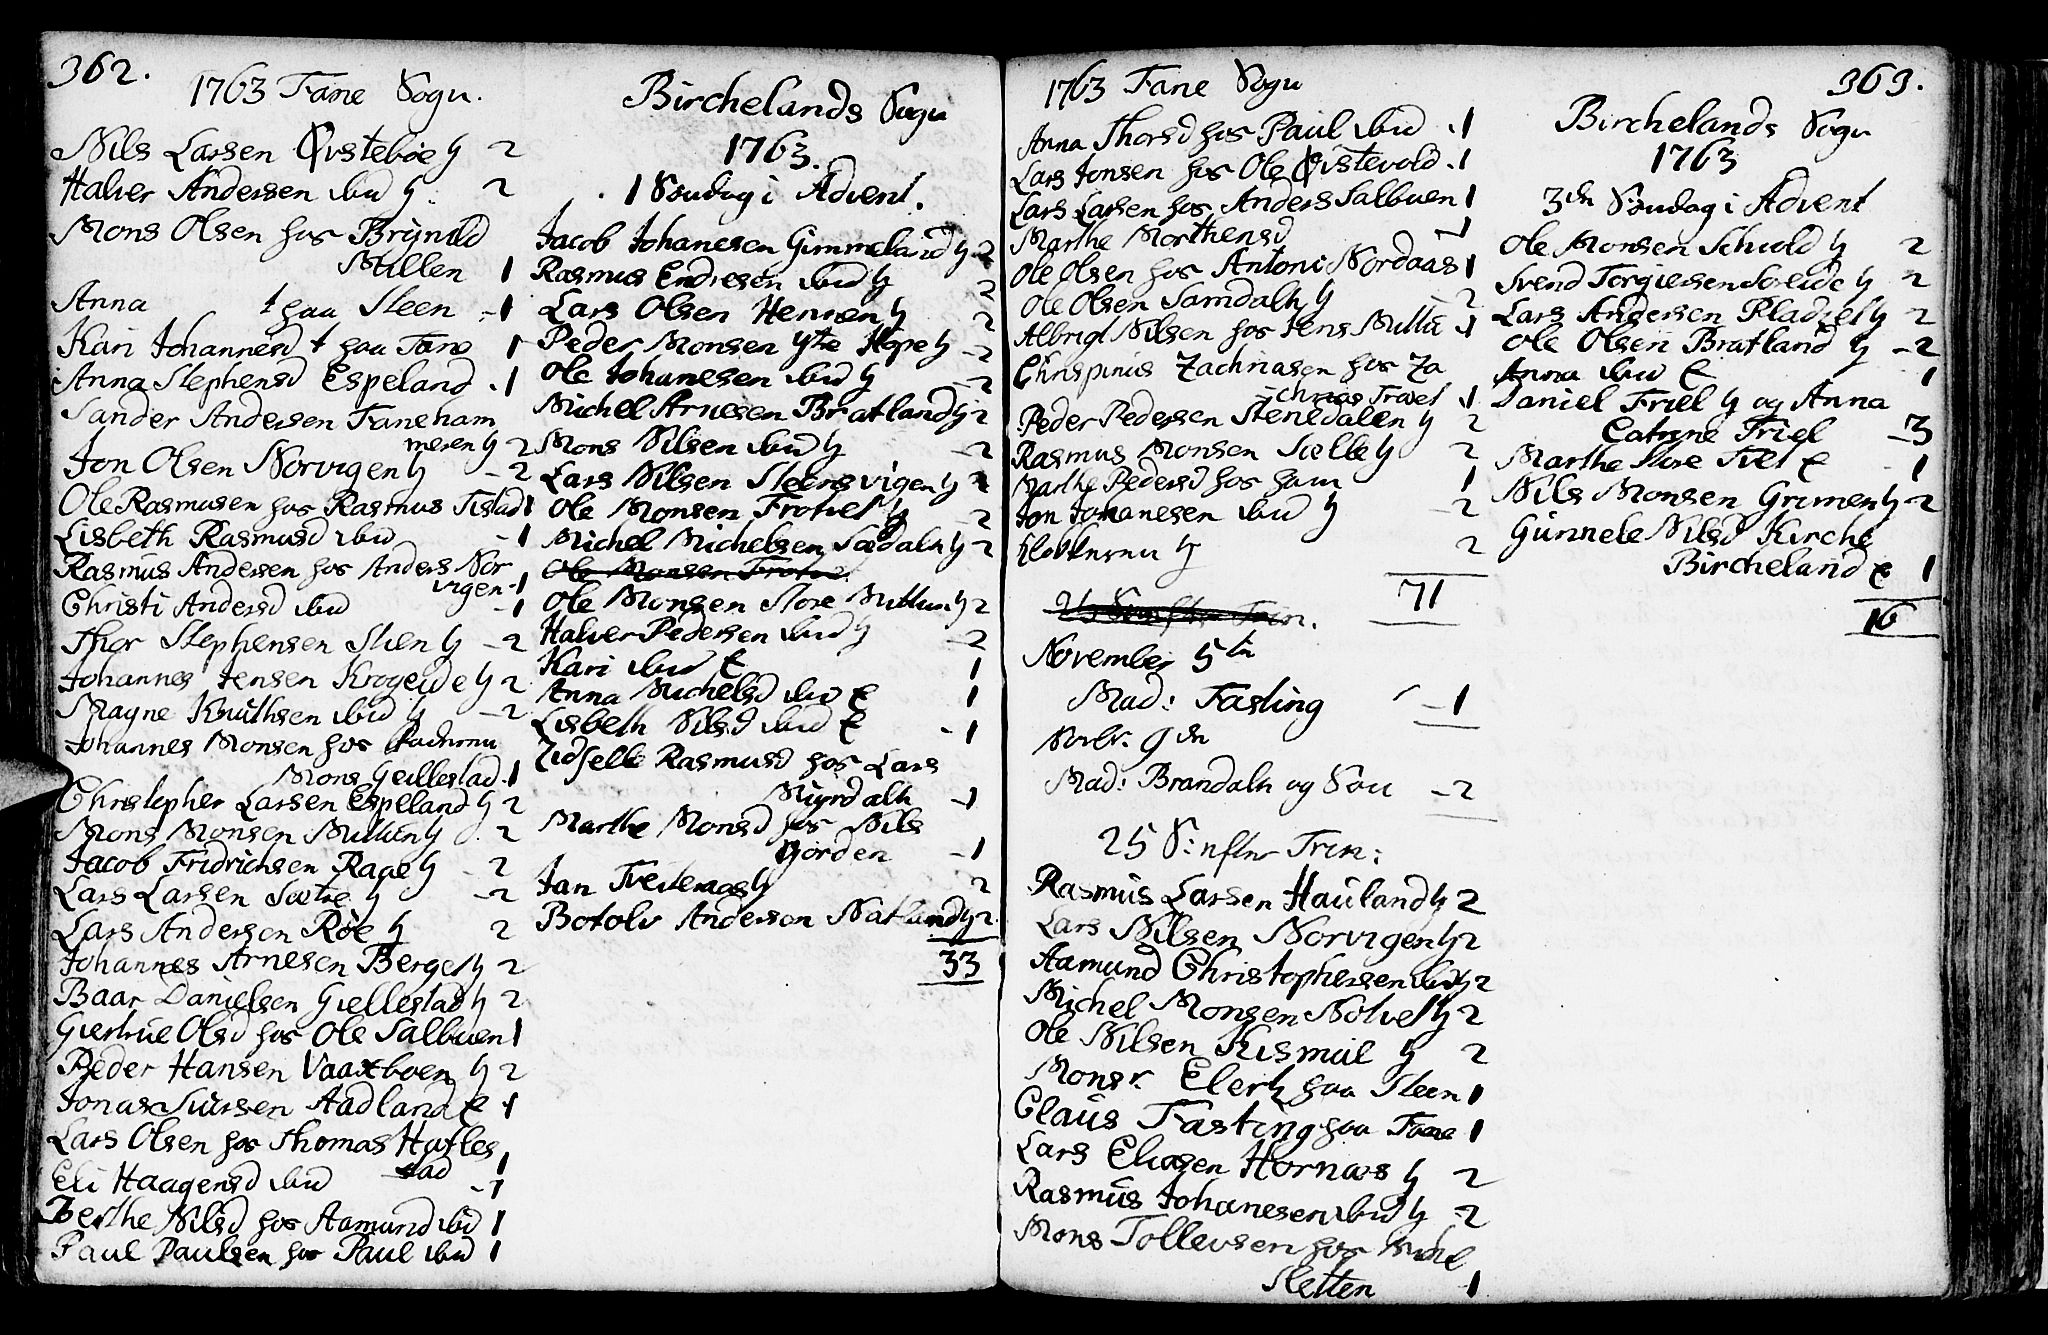 362.
1763 Fane Sogn.
Nils Larsen Øvstebøe h 2
Halver Andersen ibid h. 2
Mons Olsen hos Brynild
Millen 1
Anna t paa Steen - 1
Kari Johannesd t paa Fane 1
Anna Stephensd Espeland . 1
Sander Andersen Faneham
meren h 2
Jon Olsen Norvigen h - 2
Ole Rasmusen hos Rasmus Tistad 1
Lisbeth Rasmusd ibid - 1
Rasmus Andersen hos Anders Nor
vigen - 1
Christi Andersd ibid - 1
Thor Stephensen Stien h - 2
Johannes Jensen Krogeide h 2
Magne Knuthsen ibid h - 2
Johannes Monsen hos
Mons Giellestad . 1
Christopher Larsen Espeland h 2
Mons Monsen Mittun h . 2
Jacob Fridrichsen Rage h 2
Lars Larsen Sætre h - 2
Lars Andersen Røe h 2
Johannes Arnesen Berge h 2
Baar Danielsen Giellestad h 2
Giertrue Olsd hos Ole Salbuen 1
Peder Hansen Vaaxboen h 2
Jonas Siursen Aadland E 1
Lars Olsen hos Thomas Hatles
tad 1
Eli Haagensd ibid - 1
Berthe Nilsd hos Aamund ibid 1
Paul Paulsen hos Paul ibid 1
Birchelands Sogn
1763.
1 Søndag i Advent.
Jacob Johanesen Gimmeland h 2
Rasmus Endresen ibid h 2
Lars Olsen Hennen h 2
Peder Monsen Ytre Hope h - 2
Ole Johanesen ibid h - 2
Michel Arnesen Bratland h 2
Mons Nilsen ibid h - 2
Lars Nilsen Steensvigen h 2
Ole Monsen Frotvet h - 2
Michel Michelsen Sædaln h - 2
Ole Monsen Frotve
Ole Monsen Store Mittun h 2
Halver Pedersen ibid h - 2
Kari ibid E 1
Anna Michelsd ibid E 1
Lisbeth Nilsd ibid E - 1
Zidselle Rasmusd hos Lars
Myrdaln - 1
Marthe Monsd hos Nils
Giorden - 1
Jan Tveiteraas h 2
Botolv Andersen Natland h 2.
33
1763 Fane Sogn
Anna Thorsd hos Paul ibid . 1
Lars Jonsen hos Ole Øvstevold . 1
Lars Larsen hos Anders Salbuen 1
Marthe Morthensd - 1
Ole Olsen hos Antoni Nordaas 1
Ole Olsen Samdaln h - 2
Albrigt Nilsen hos Jens Mittu - 1
Chrispinus Zachriasen hos Za
chrias Tvoet 1
Peder Pedersen Stenedalen h 2
Rasmus Monsen Sælle h 2
Marthe Pedersd hos ham 1
Jon Johanesen ibid h - 2
Klokkeren h 2
71
November 5te
Mad: Fasting - 1
Novbr. 9de
Mad: Brandaln og Søn - 2
25 S: efter Trin:
Rasmus Larsen Hauland h 2
Lars Nilsen Norvigen h 2
Aamund Christophersen ibid h 2
Michel Monsen Notvet h 2
Ole Nilsen Kismul h 2
Monsr. Elert paa Steen 1
Claus Fasting paa Fane 1
Lars Eliasen Hornæs h 2
Rasmus Johanesen ibid h - 2
Mons Tollevsen hos
Sletten - 1
363.
Birchelands Sogn
1763
3de Søndag i Advent
Ole Monsen Schiold h 2
Svend Torgiersen Søreide h 2
Lars Andersen Pladset h 2
Ole Olsen Bratland h - 2
Anna ibid E 1
Daniel Friel h og Anna
Catrine Friel - 3
Marthe Store Tvet E - 1
Nils Monsen Grimen h - 2
Gunnele Nilsd Kirche
Bircheland E 1
16